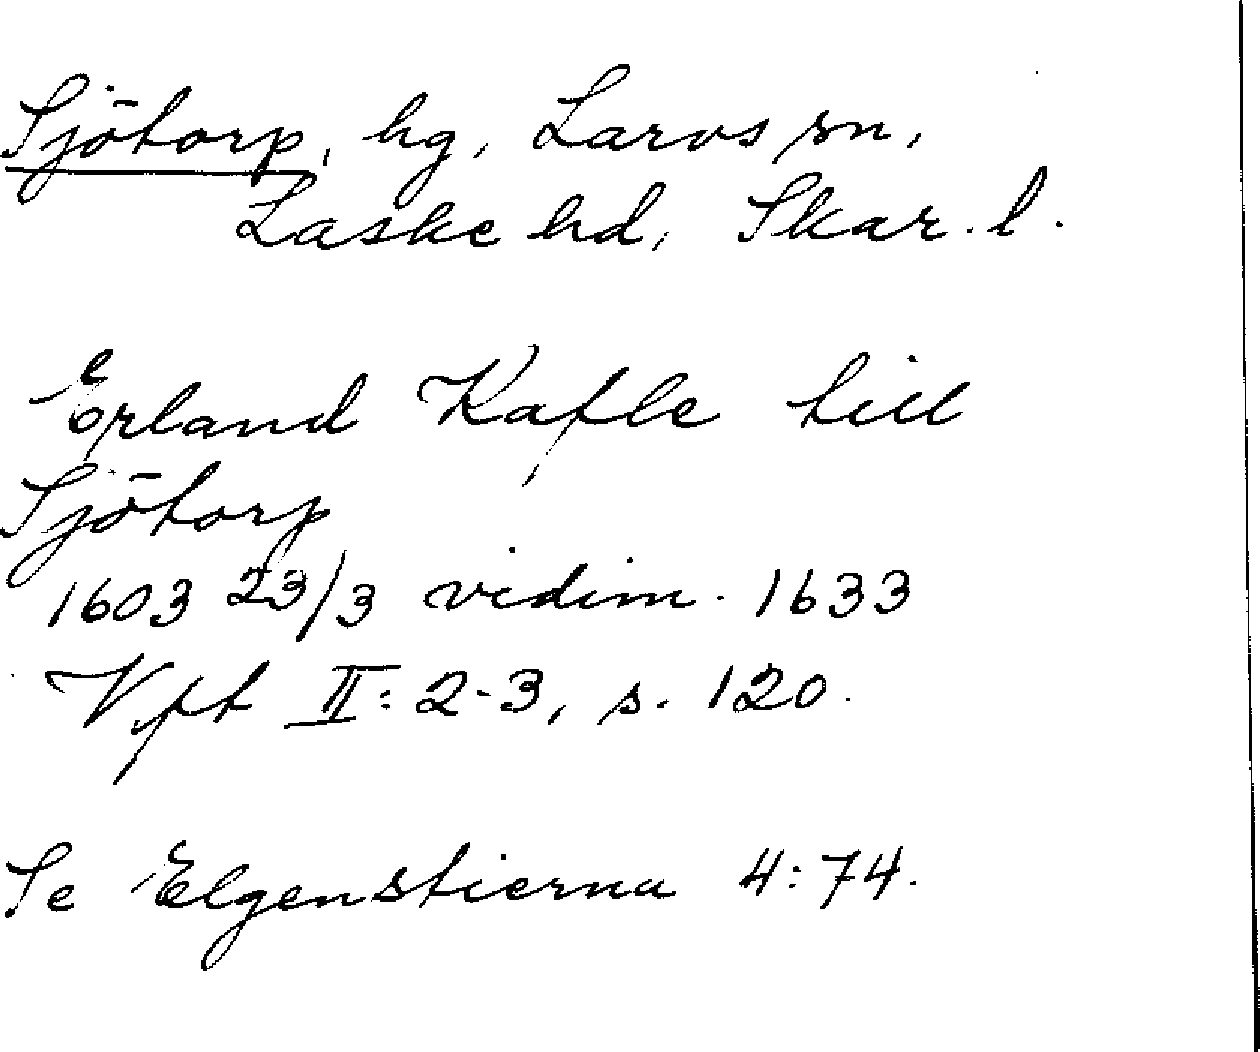 Sjötorp, hg, Larvs sn,
Laske hd, Skar. l.
Erland Kafle till
Sjötorp
1603 23/3 vidim. 1633
Vft II: 2-3, s. 120.
Se Elgenstierna 4:74.